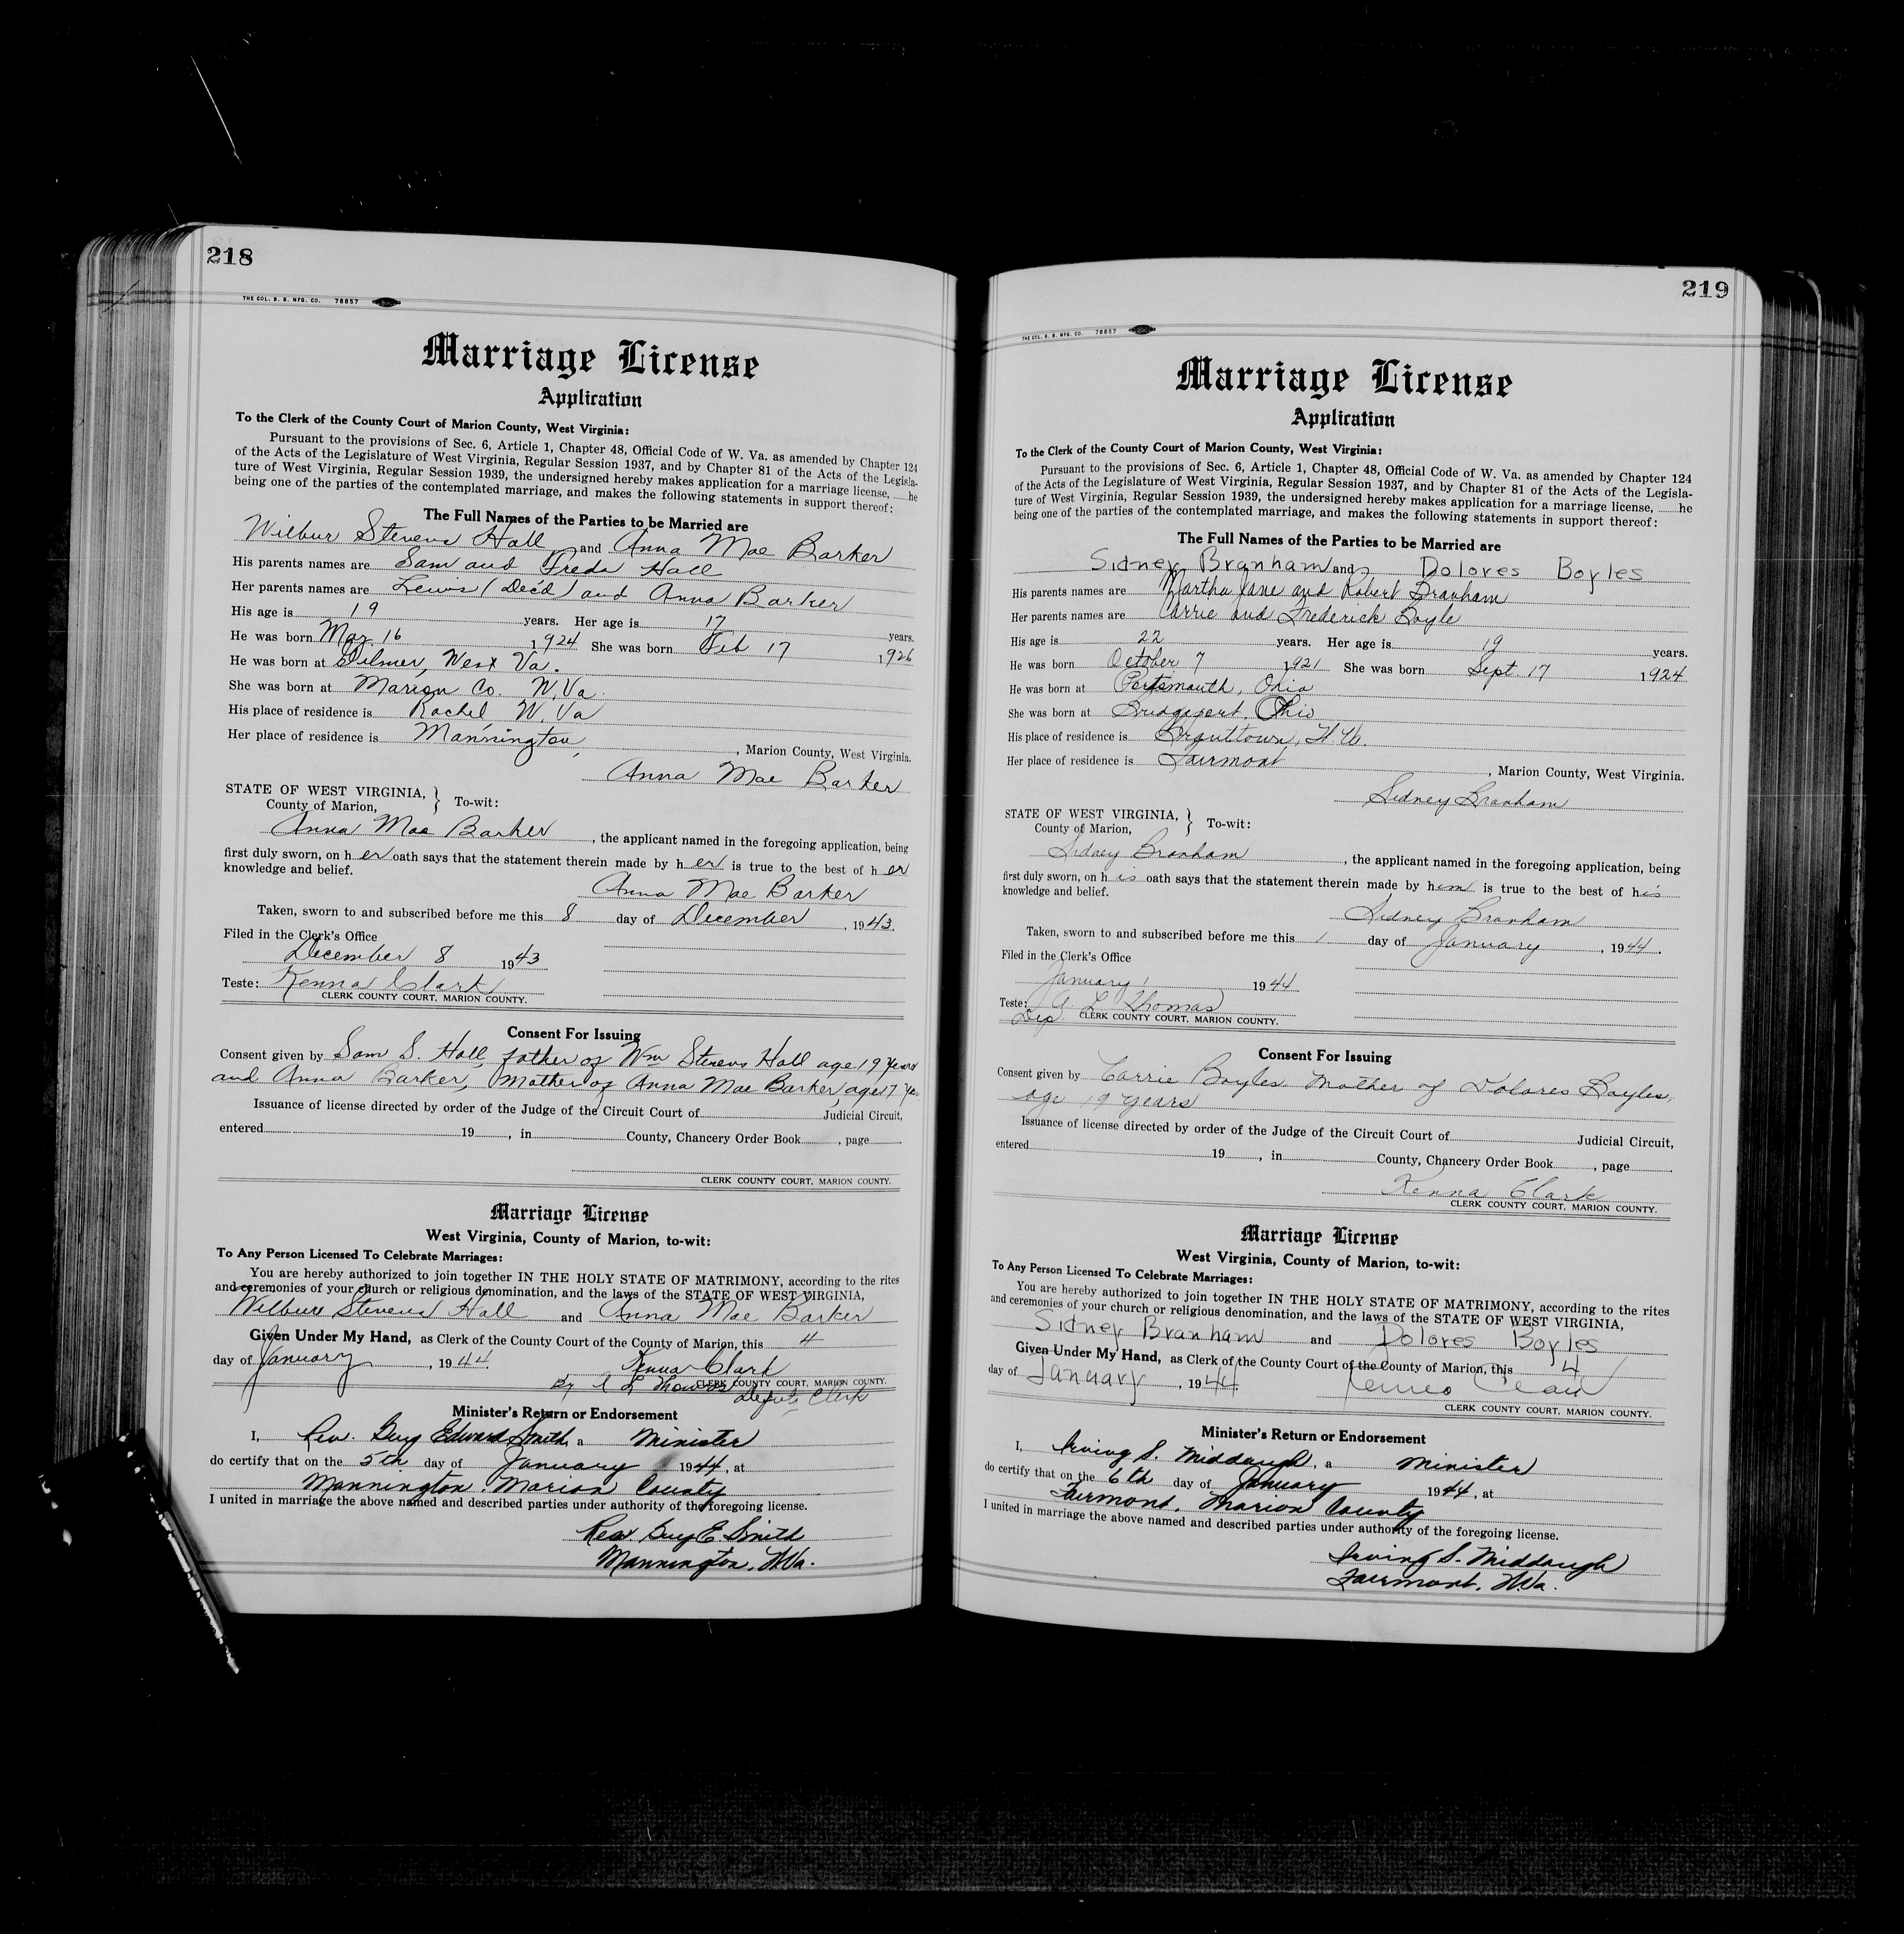 218
THE COL. B. B. MFG. CO. 78857
Marriage License
Application
To the Clerk of the County Court of Marion County, West Virginia:
Pursuant to the provisions of Sec. 6, Article 1, Chapter 48, Official Code of W. Va. as amended by Chapter 124
of the Acts of the Legislature of West Virginia, Regular Session 1937, and by Chapter 81 of the Acts of the Legisla-
ture of West Virginia, Regular Session 1939, the undersigned hereby makes application for a marriage license, ......he
being one of the parties of the contemplated marriage, and makes the following statements in support thereof:
The Full Names of the Parties to be Married are
Wilbur Stevens Hall and Anna Mae Barker
His parents names are Sam and Freda Hall
Her parents names are Lewis (Dec'd) and Anna Barker
His age is 19 years. Her age is 17 years.
He was born Mar 16 1924 She was born Feb 17 1926
He was born at Gilmer, West Va.
She was born at Marion Co. W. Va.
His place of residence is Rachel, W. Va
Her place of residence is Mannington, , Marion County, West Virginia.
Anna Mae Barker
STATE OF WEST VIRGINIA,
County of Marion, } To-wit:
Anna Mae Barker , the applicant named in the foregoing application, being
first duly sworn, on h er oath says that the statement therein made by h er is true to the best of h er
knowledge and belief.
Anna Mae Barker
Taken, sworn to and subscribed before me this 8 day of December , 1943.
Filed in the Clerk's Office
December 8 1943
Teste: Kenna Clark
CLERK COUNTY COURT, MARION COUNTY.
Consent For Issuing
Consent given by Sam S. Hall, father of Wm Stevens Hall age 19 years
and Anna Barker, Mother of Anna Mae Barker, age 17
Issuance of license directed by order of the Judge of the Circuit Court of Judicial Circuit,
entered 19 , in County, Chancery Order Book , page
CLERK COUNTY COURT, MARION COUNTY.
Marriage License
West Virginia, County of Marion, to-wit:
To Any Person Licensed To Celebrate Marriages:
You are hereby authorized to join together IN THE HOLY STATE OF MATRIMONY, according to the rites
and ceremonies of your church or religious denomination, and the laws of the STATE OF WEST VIRGINIA,
Wilbur Stevens Hall and Anna Mae Barker
Given Under My Hand, as Clerk of the County Court of the County of Marion, this 4
day of January , 1944.
Kenna Clark
CLERK COUNTY COURT, MARION COUNTY.
By A L Thomas Deputy Clerk
Minister's Return or Endorsement
I, Rev. Guy Edward Smith, a Minister
do certify that on the 5th day of January 1944, at
Mannington, Marion County
I united in marriage the above named and described parties under authority of the foregoing license.
Rev Guy E. Smith
Mannington, W.Va.
219
THE COL. B. B. MFG. CO. 78857
Marriage License
Application
To the Clerk of the County Court of Marion County, West Virginia:
Pursuant to the provisions of Sec. 6, Article 1, Chapter 48, Official Code of W. Va. as amended by Chapter 124
of the Acts of the Legislature of West Virginia, Regular Session 1937, and by Chapter 81 of the Acts of the Legisla-
ture of West Virginia, Regular Session 1939, the undersigned hereby makes application for a marriage license, ......he
being one of the parties of the contemplated marriage, and makes the following statements in support thereof:
The Full Names of the Parties to be Married are
Sidney Branham and Dolores Boyles
His parents names are Martha Jane and Robert Branham
Her parents names are Carrie and Frederick Boyle
His age is 22 years. Her age is 19 years.
He was born October 7 1921 She was born Sept. 17 1924
He was born at Portsmouth, Ohio
She was born at Bridgeport, Ohio
His place of residence is W. Va.
Her place of residence is Fairmont , Marion County, West Virginia.
Sidney Branham
STATE OF WEST VIRGINIA,
County of Marion, } To-wit:
Sidney Branham , the applicant named in the foregoing application, being
first duly sworn, on h is oath says that the statement therein made by him is true to the best of his
knowledge and belief.
Sidney Branham
Taken, sworn to and subscribed before me this 1 day of January , 1944.
Filed in the Clerk's Office
January 1 1944
Teste: A L Thomas
Dep CLERK COUNTY COURT, MARION COUNTY.
Consent For Issuing
Consent given by Carrie Boyles Mother of Dolores Boyles,
age 19 years
Issuance of license directed by order of the Judge of the Circuit Court of Judicial Circuit,
entered 19 , in County, Chancery Order Book , page
Kenna Clark
CLERK COUNTY COURT, MARION COUNTY.
Marriage License
West Virginia, County of Marion, to-wit:
To Any Person Licensed To Celebrate Marriages:
You are hereby authorized to join together IN THE HOLY STATE OF MATRIMONY, according to the rites
and ceremonies of your church or religious denomination, and the laws of the STATE OF WEST VIRGINIA,
Sidney Branham and Dolores Boyles
Given Under My Hand, as Clerk of the County Court of the County of Marion, this 4
day of January , 1944. Kenna Clark
CLERK COUNTY COURT, MARION COUNTY.
Minister's Return or Endorsement
I, Irving S. Middaugh, a Minister
do certify that on the 6th day of January 1944, at
Fairmont, Marion County
I united in marriage the above named and described parties under authority of the foregoing license.
Irving S. Middaugh
Fairmont, W.Va.